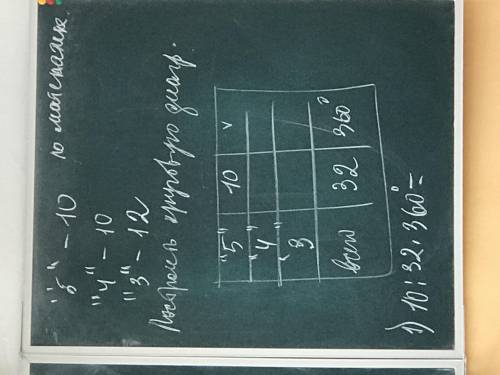 "5" – 10 по математике
"4" – 10
"3" – 12
Построить кругов-ую диагр.
"5" 10 v
"4"
"3
всего 32 360°
1) 10 : 32 · 360° =